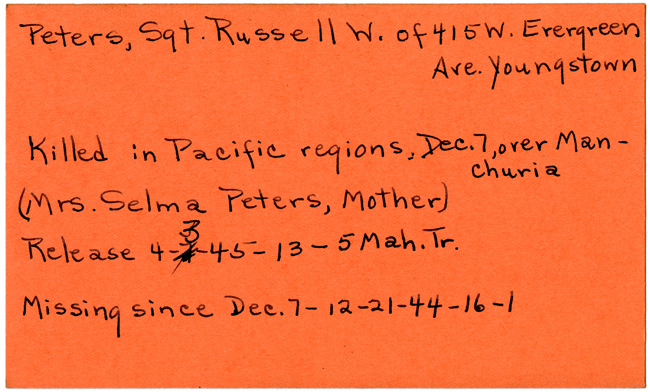 Peters, Sgt. Russell W. of 415 W. Evergreen
Ave. Youngstown
Killed in Pacific regions, Dec. 7, over Man-
churia
(Mrs. Selma Peters, Mother)
Release 4-3-45-13-5 Mah. Tr.
Missing since Dec. 7-12-21-44-16-1